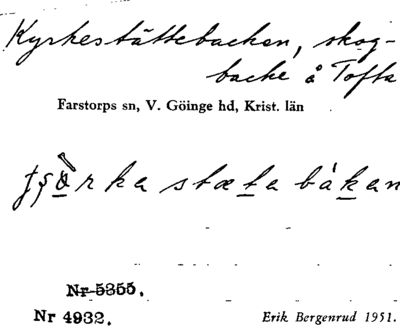 Kyrkestättebacken, skog-
backe å Tofta
Farstorps sn, V. Göinge hd, Krist. län
stæta båkan
Nr 5355.
Nr 4932.
Erik Bergenrud 1951.